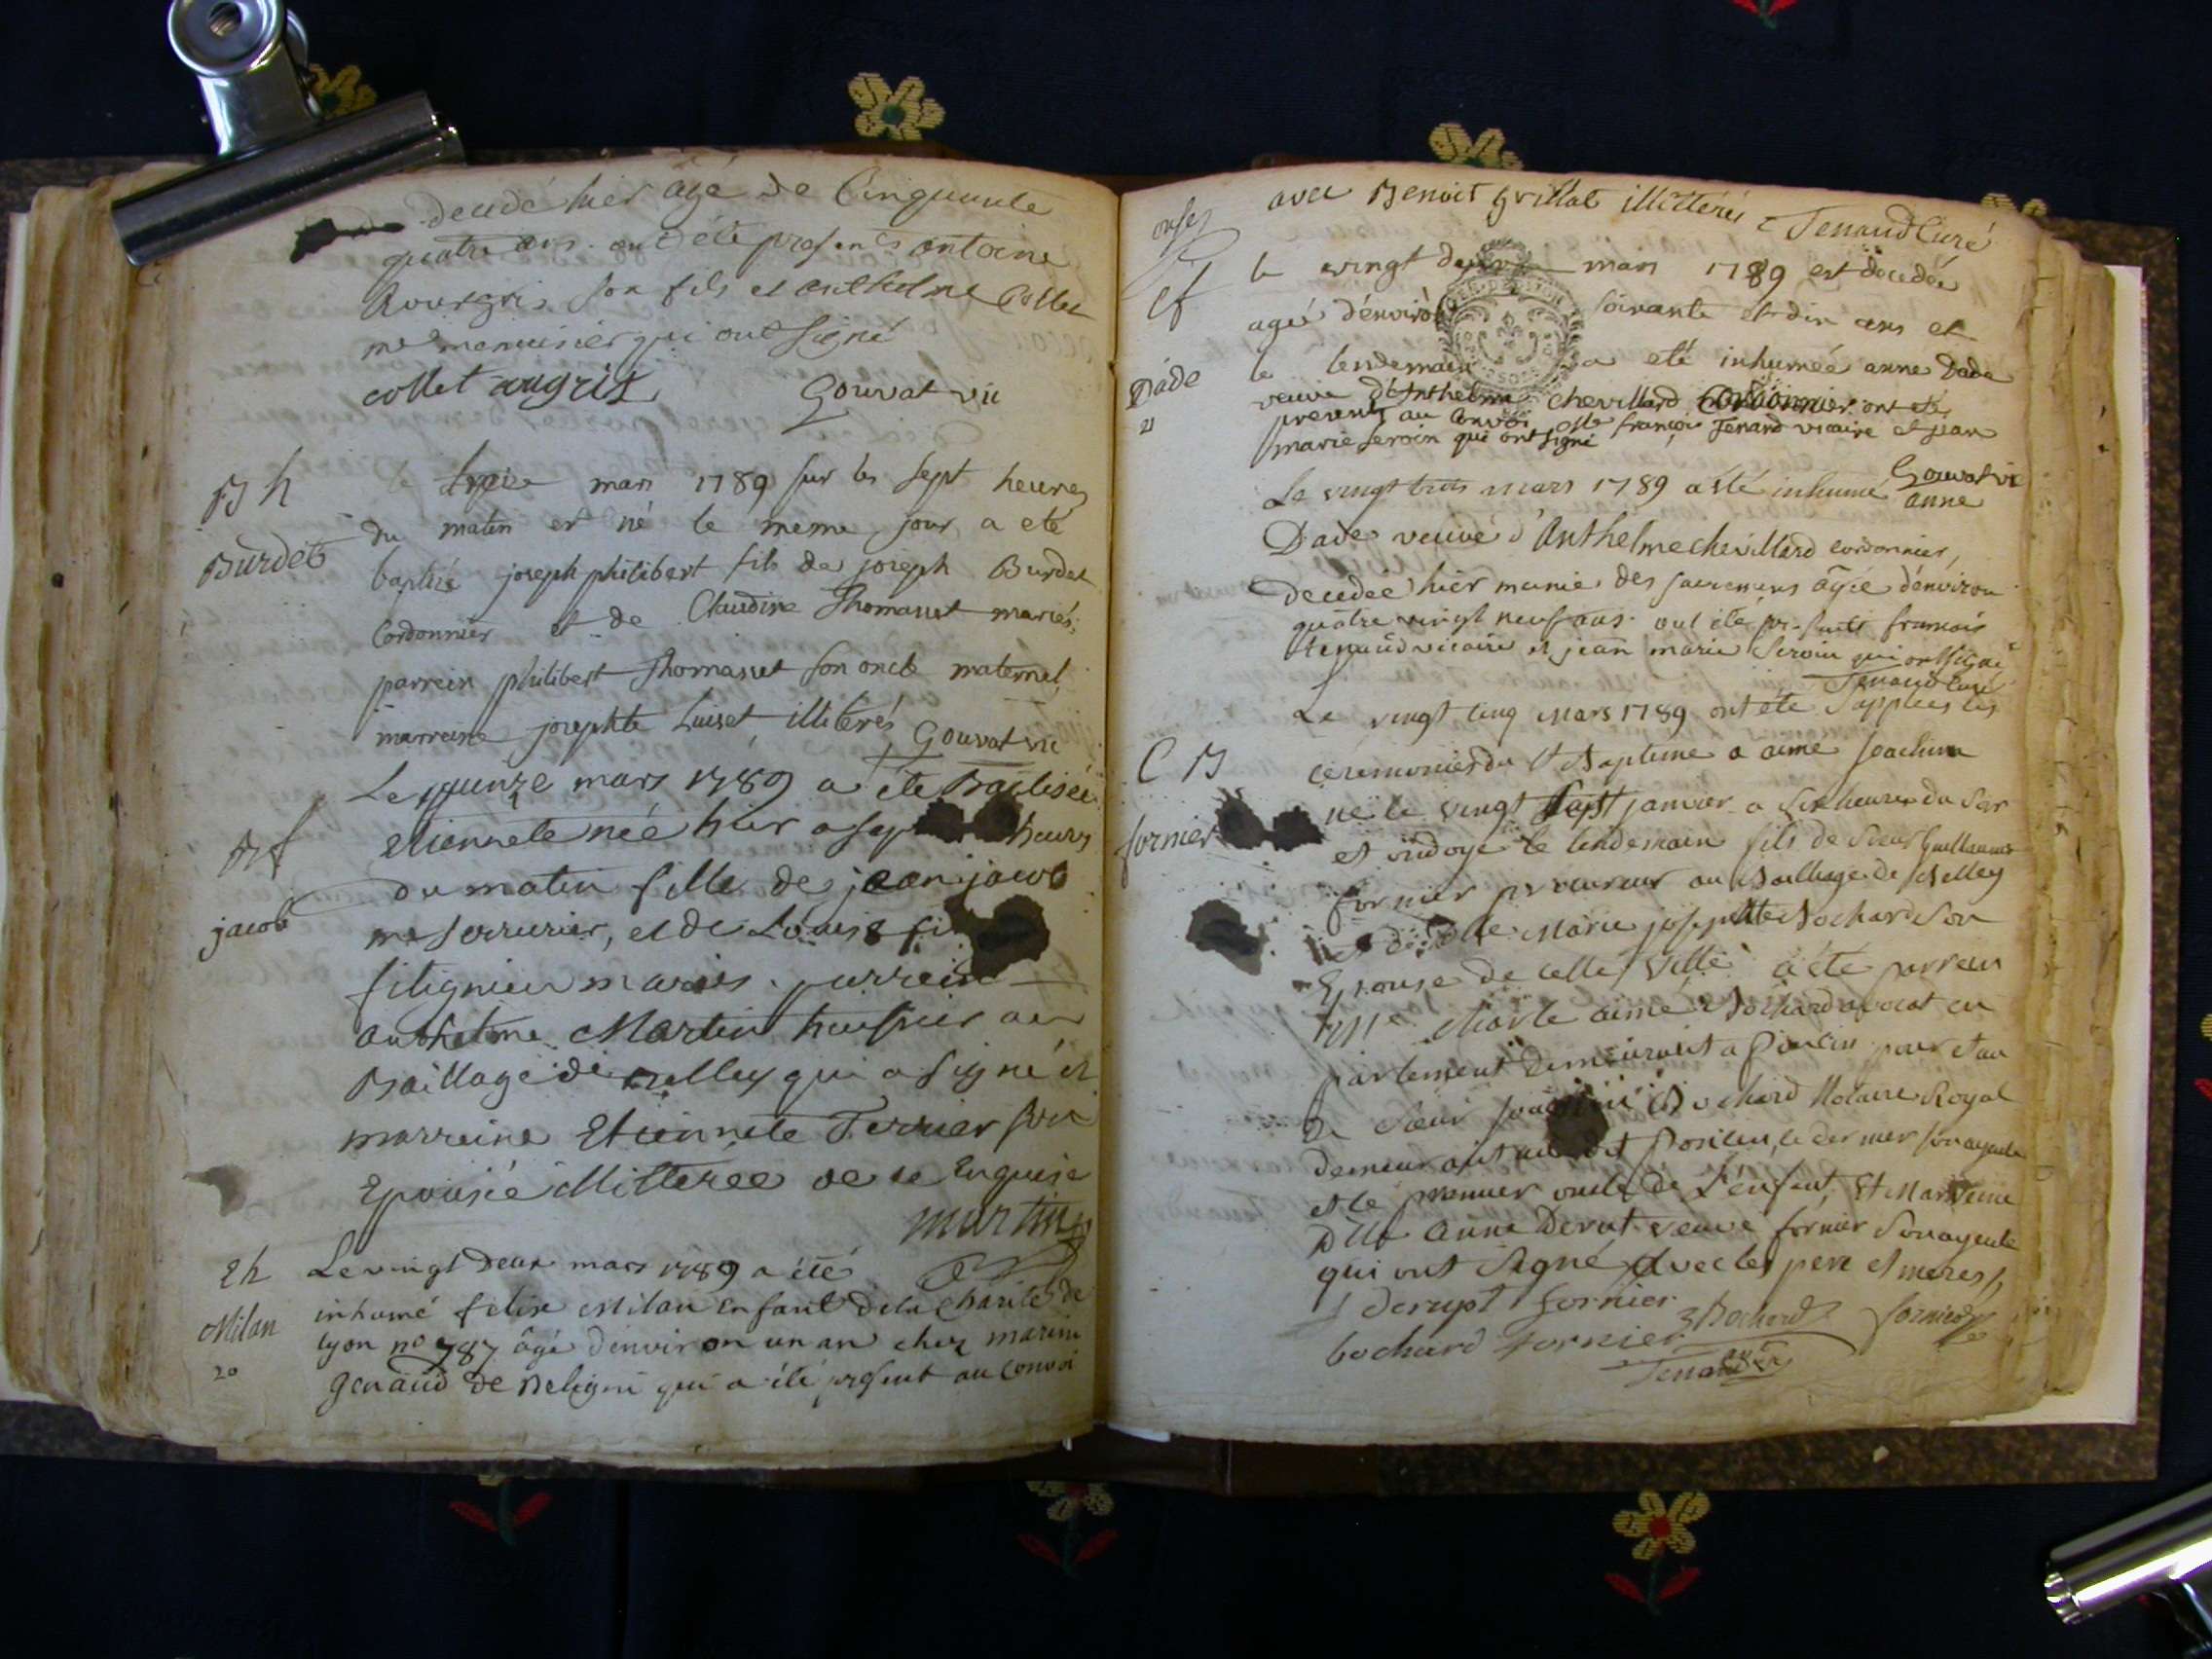 decedé hier âgé de Cinquante
quatre ans. ont été presents antoine
son fils et anthelme Collet
me menuisier qui ont signé
collet augris Gouvat vic
B h
Burdet
le treize mars 1789 sur les sept heures
du matin est né le meme jour a eté
baptisé joseph philibert fils de joseph Burdet
Cordonnier et de Claudine Thomasset mariés,
parrein philibert Thomasset son oncle maternel,
marreine josephte Luiset, illiterés Gouvat vic
B f
jacob
Le quinze mars 1789 a été Batisée
etiennete née hier a sept heures
du matin fille de jean jacob
me serrurier, et de Louise
filignieu mariés. parrein
anthelme Martin huissier au
Baillage de Belley qui a signé et
marreine Etiennete Terrier son
Epouse illitteree de ce Enquise
martin
E h
Milan
20
Le vingt Deux mars 1789 a été
inhumé felix Milan enfant de la Charité de
lyon no 787 âgé d'environ un an chez marin
genaud de Beligni qui a été present au convoi
avec Benoit grillat illitterés Tenand Curé
Ef
Dade
21
le vingt deux mars 1789 est decedée
ageé d'environ soixante et dix ans et
le lendemain a eté inhumeé anne Dade
veuve d'Anthelme Chevillard Cordonnier ont eté
presents au Convoi françois Tenand vicaire et jean
marie Seroin qui ont signé
Gouvat vic
Le vingt trois mars 1789 a été inhumé anne
Dade veuve d'Anthelme chevillard cordonnier,
decedée hier munie des sacremens âgée d'environ
quatre vingt neuf ans. ont été presents francois
tenand vicaire et jean marie Seroin qui ont signé
Tenand curé
C B
fornier
Le vingt cinq Mars 1789 ont eté Supplees les
cérémonies du St Baptême a aimé Joachim
né le vingt Sept janvier a six heures du Soir
et ondoyé le lendemain fils de Sieur Guillaume
fornier procureur au Bailliage de Belley
et de Dlle Marie josephte Bochard Son
Epouse de cette Ville a été parrein
Mre Marie aimé Bochard avocat en
parlement demeurant a Poncin pour et au
De Sieur Joachim Bochard Notaire Royal
demeurant au dit Poncin, le dernier son ayeul
et le premier oncle de l'enfant, Et Marreine
Dlle Anne Derupt veuve fornier Son ayeule
qui ont Signé avec les pere et meres
derupt fornier Bochard fornier
bochard fornier
Tenand